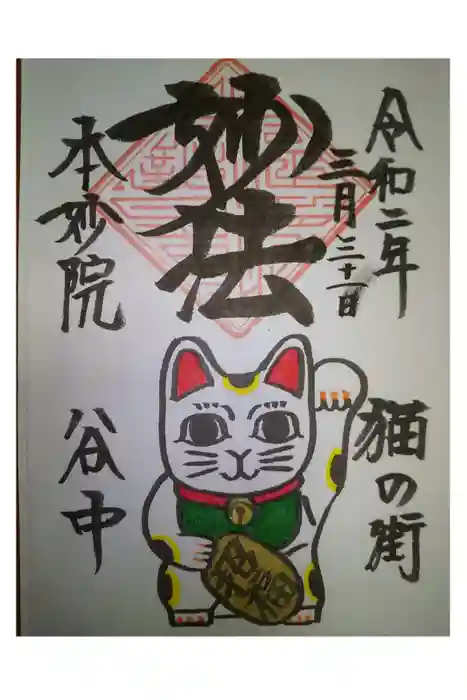 令和二年
三月三十一日
猫の街
妙法
本妙院
谷中